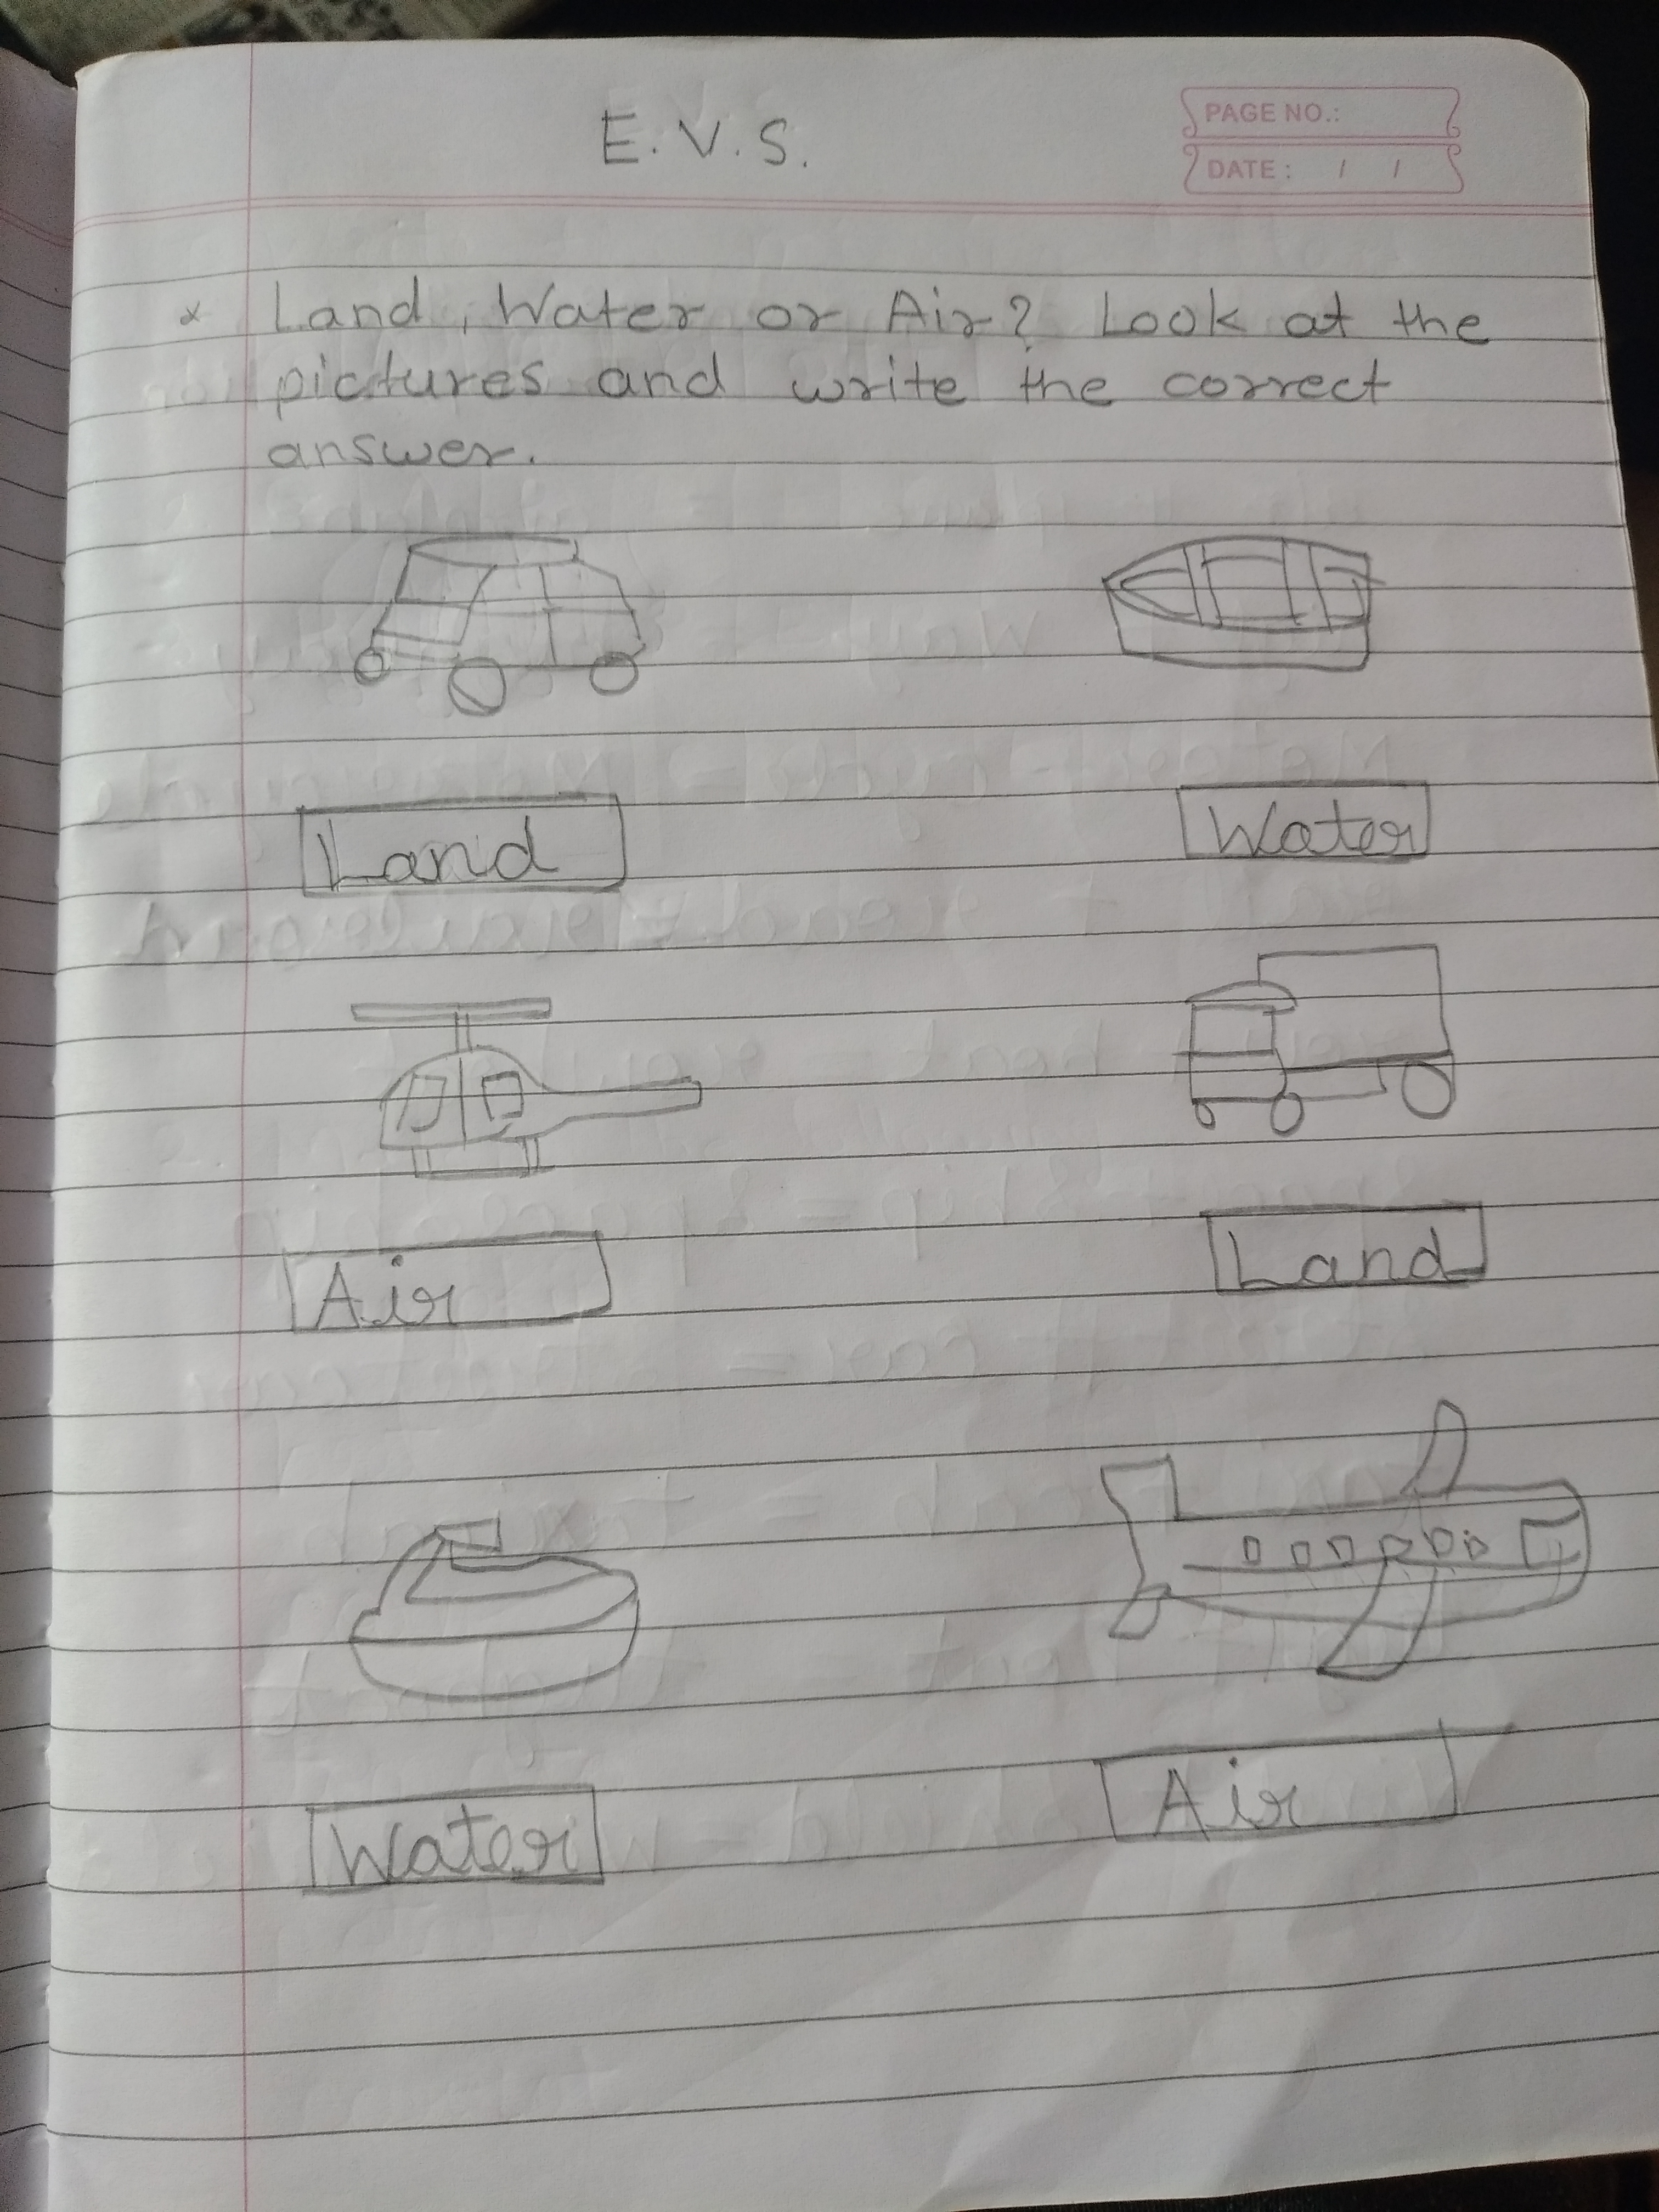 E.V.S.
PAGE NO.:
DATE: / /
Land, Water or Air? Look at the
pictures and write the correct
answer.
Land
Water
Air
Land
Water
Air